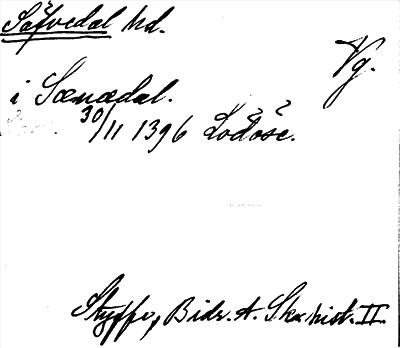 Säfvedal hd.
Vg.
i Sæuædal.
30/11 1396 Lodose.
Styffe, Bidr. t. Skand. hist. II.